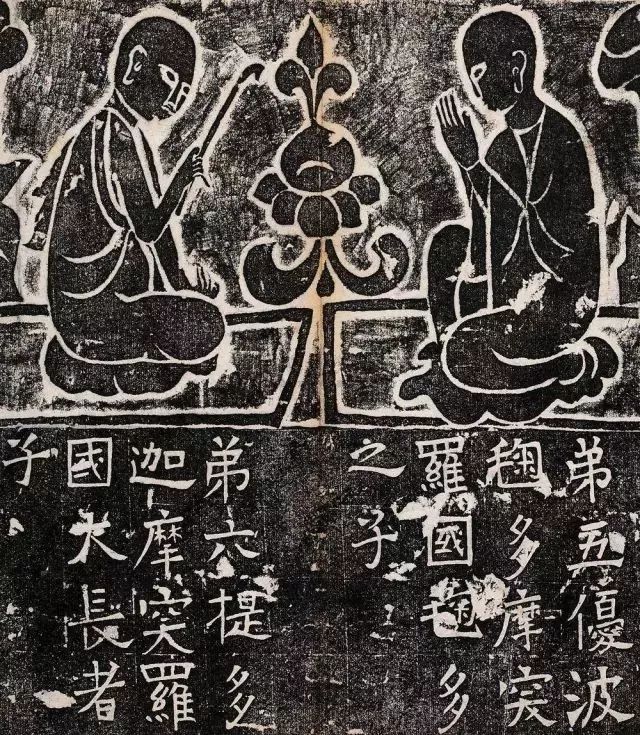 弟五優波
毱多摩突
羅國毱多
之子
弟六提多
迦摩突羅
國大長者
子